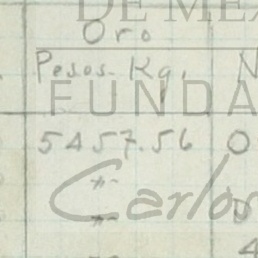 DE MÉX
Oro
Pesos. Kg. N
FUNDA
5457.56 0
Carlos
4